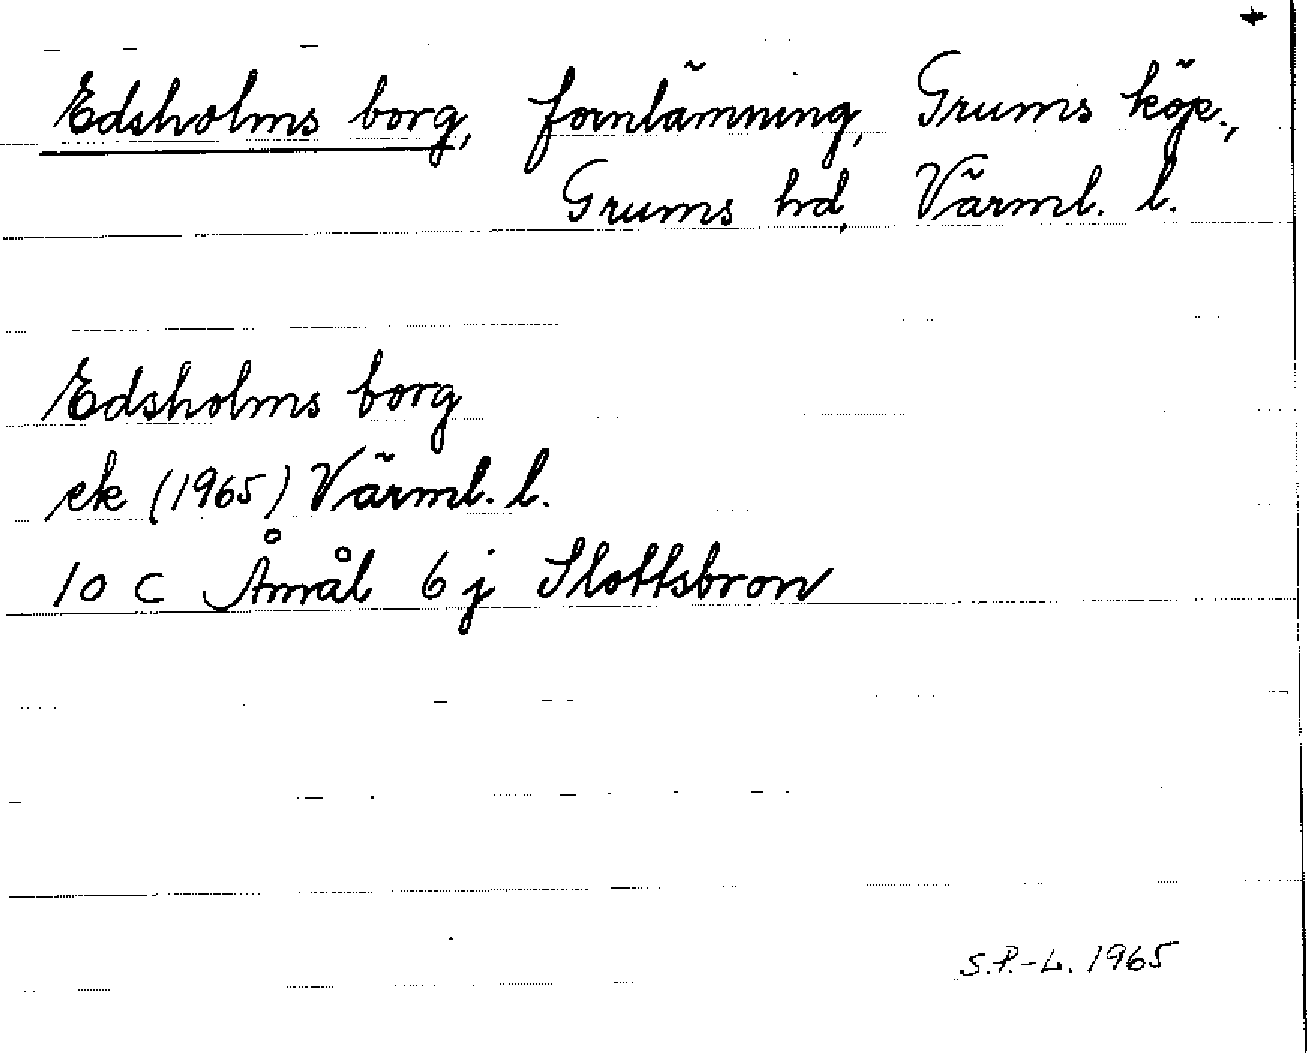 Edsholms borg, fornlämning, Grums köp.,
Grums hd, Värml. l.
Edsholms borg
ek (1965) Värml. l.
10 C Åmål 6 j Slottsbron
S.P.-L. 1965